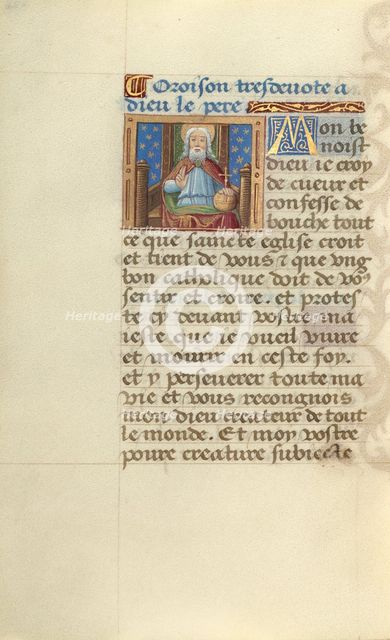 Oroison tresdevote a
dieu le pere
Mon be
noist
dieu ie croy
de cueur et
confesse de
bouche tout
ce que saincte eglise croit
et tient de vous & que ung
bon catholique doit de vo9
sentir et croire. et protes
te cy devant vostre ma
ieste que ie vueil vivre
et mourir en ceste foy.
et y perseverer toute ma
vie et vous recongnois
mon dieu createur de tout
le monde. Et moy vostre
povre creature subiecte
Heritage Heritage Heritage